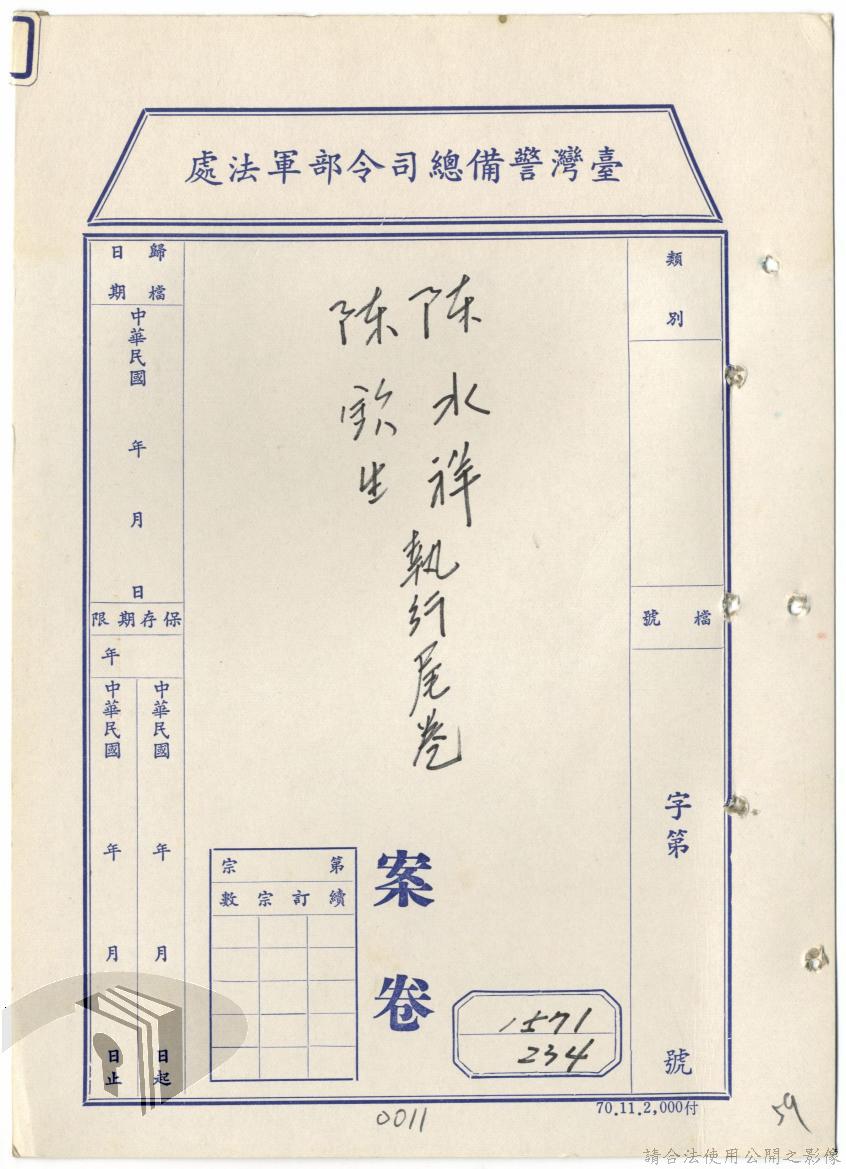 臺灣警備總司令部軍法處
類別
檔號
字第
號
陳水祥
陳欽生
執行尾卷
案卷
第宗
續訂宗數
1571
234
歸檔日期
中華民國 年 月 日
保存期限
年
中華民國 年 月 日起
中華民國 年 月 日止
70.11.2,000付
0011
59
請合法使用公開之影像